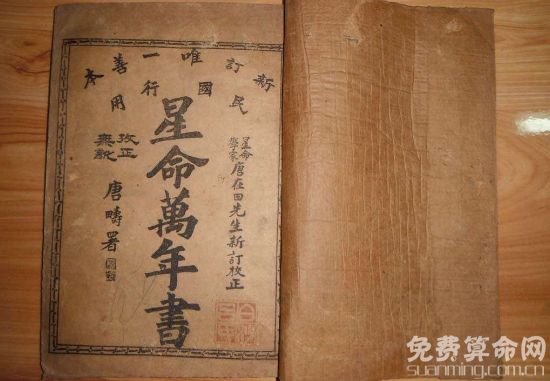 新訂唯一善本
民國行用
星命學家唐在田先生新訂校正
星命萬年書
校正無訛
唐疇署
免费算命网
suanming.com.cn